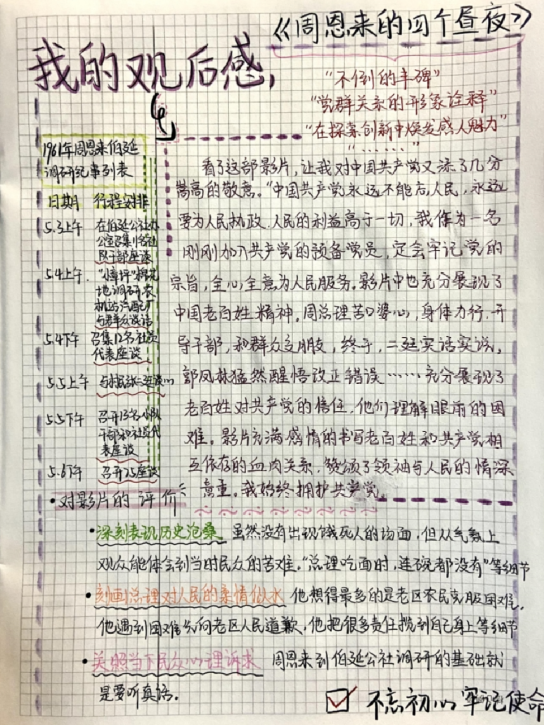 《周恩来的四个昼夜》
我的观后感,
“不倒的丰碑”
“党群关系的形象诠释”
“在探索创新中焕发感人魅力”
“……”
1961年周恩来伯延
调研纪事列表
日期 行程安排
5.3上午 在伯延公社办
公室召集
干部座谈
5.4上午
地调研农
与群众谈话
5.4下午 召集12名社员
代表座谈
5.5上午 与张二廷谈心
5.5下午 召开13名小队
干部和社员代
表座谈
5.6下午 召开25座谈
看了这部影片，让我对中国共产党又添了几分
崇高的敬意。“中国共产党永远不能忘人民，永远
要为人民执政，人民的利益高于一切，我作为一名
刚刚加入共产党的预备党员，定会牢记党的
宗旨，全心全意为人民服务。影片中也充分展现了
中国老百姓精神。周总理苦口婆心，身体力行，开
导干部，和群众交朋友，终于，二廷实话实说，
郭凤林猛然醒悟改正错误……充分展现了
老百姓对共产党的信任，他们理解眼前的困
难。影片充满感情的书写老百姓和共产党相
互依存的血肉关系，赞颂了领袖与人民的情深
意重。我始终拥护共产党。
·对影片的评价:
·深刻表现历史沧桑 虽然没有出现饿死人的场面，但从气氛上
观众能体会到当时民众的苦难。“总理吃面时，连碗都没有”等细节
·刻画总理对人民的柔情似水 他想得最多的是老区农民克服困难，
他遇到困难先向老区人民道歉，他把很多责任揽到自己身上等细节
·关照当下民众心理诉求 周恩来到伯延公社调研的基础就
是要听真话。
不忘初心 牢记使命